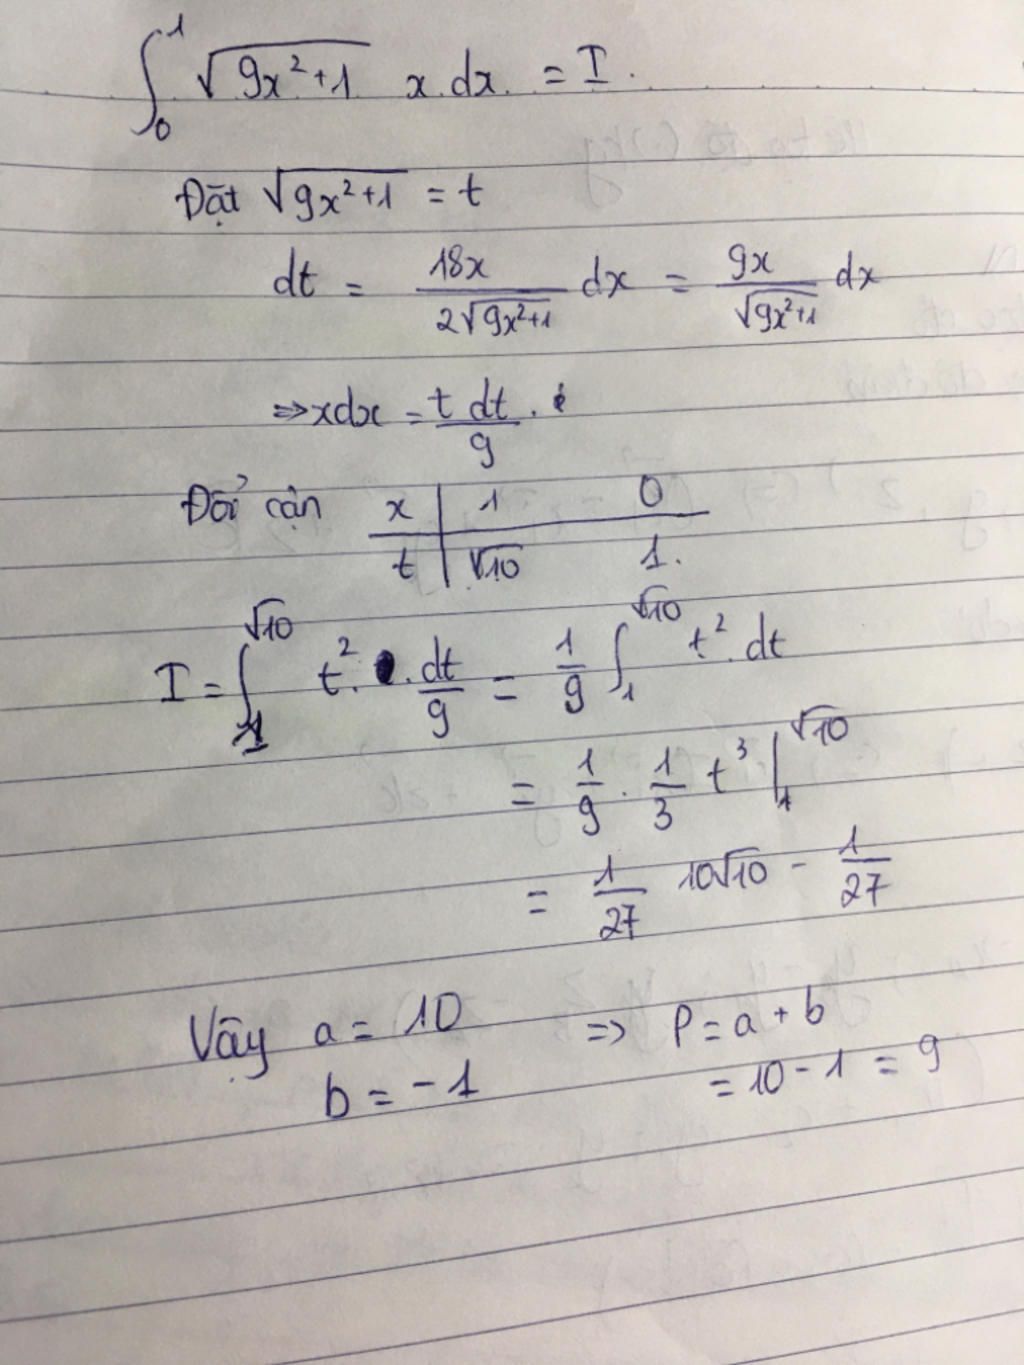 ∫₀¹ √(9x²+1) x.dx. = I.
Đặt √(9x²+1) = t
dt = 18x/(2√(9x²+1)) dx = 9x/√(9x²+1) dx
⇒ xdx = t dt/9.
Đổi cận x | 1 0
t | √10 1.
I = ∫₁^√10 t². dt/9 = 1/9 ∫₁^√10 t².dt
= 1/9 . 1/3 t³ |₁^√10
= 1/27 10√10 - 1/27
Vậy a = 10 ⇒ P = a + b
b = -1 = 10 - 1 = 9